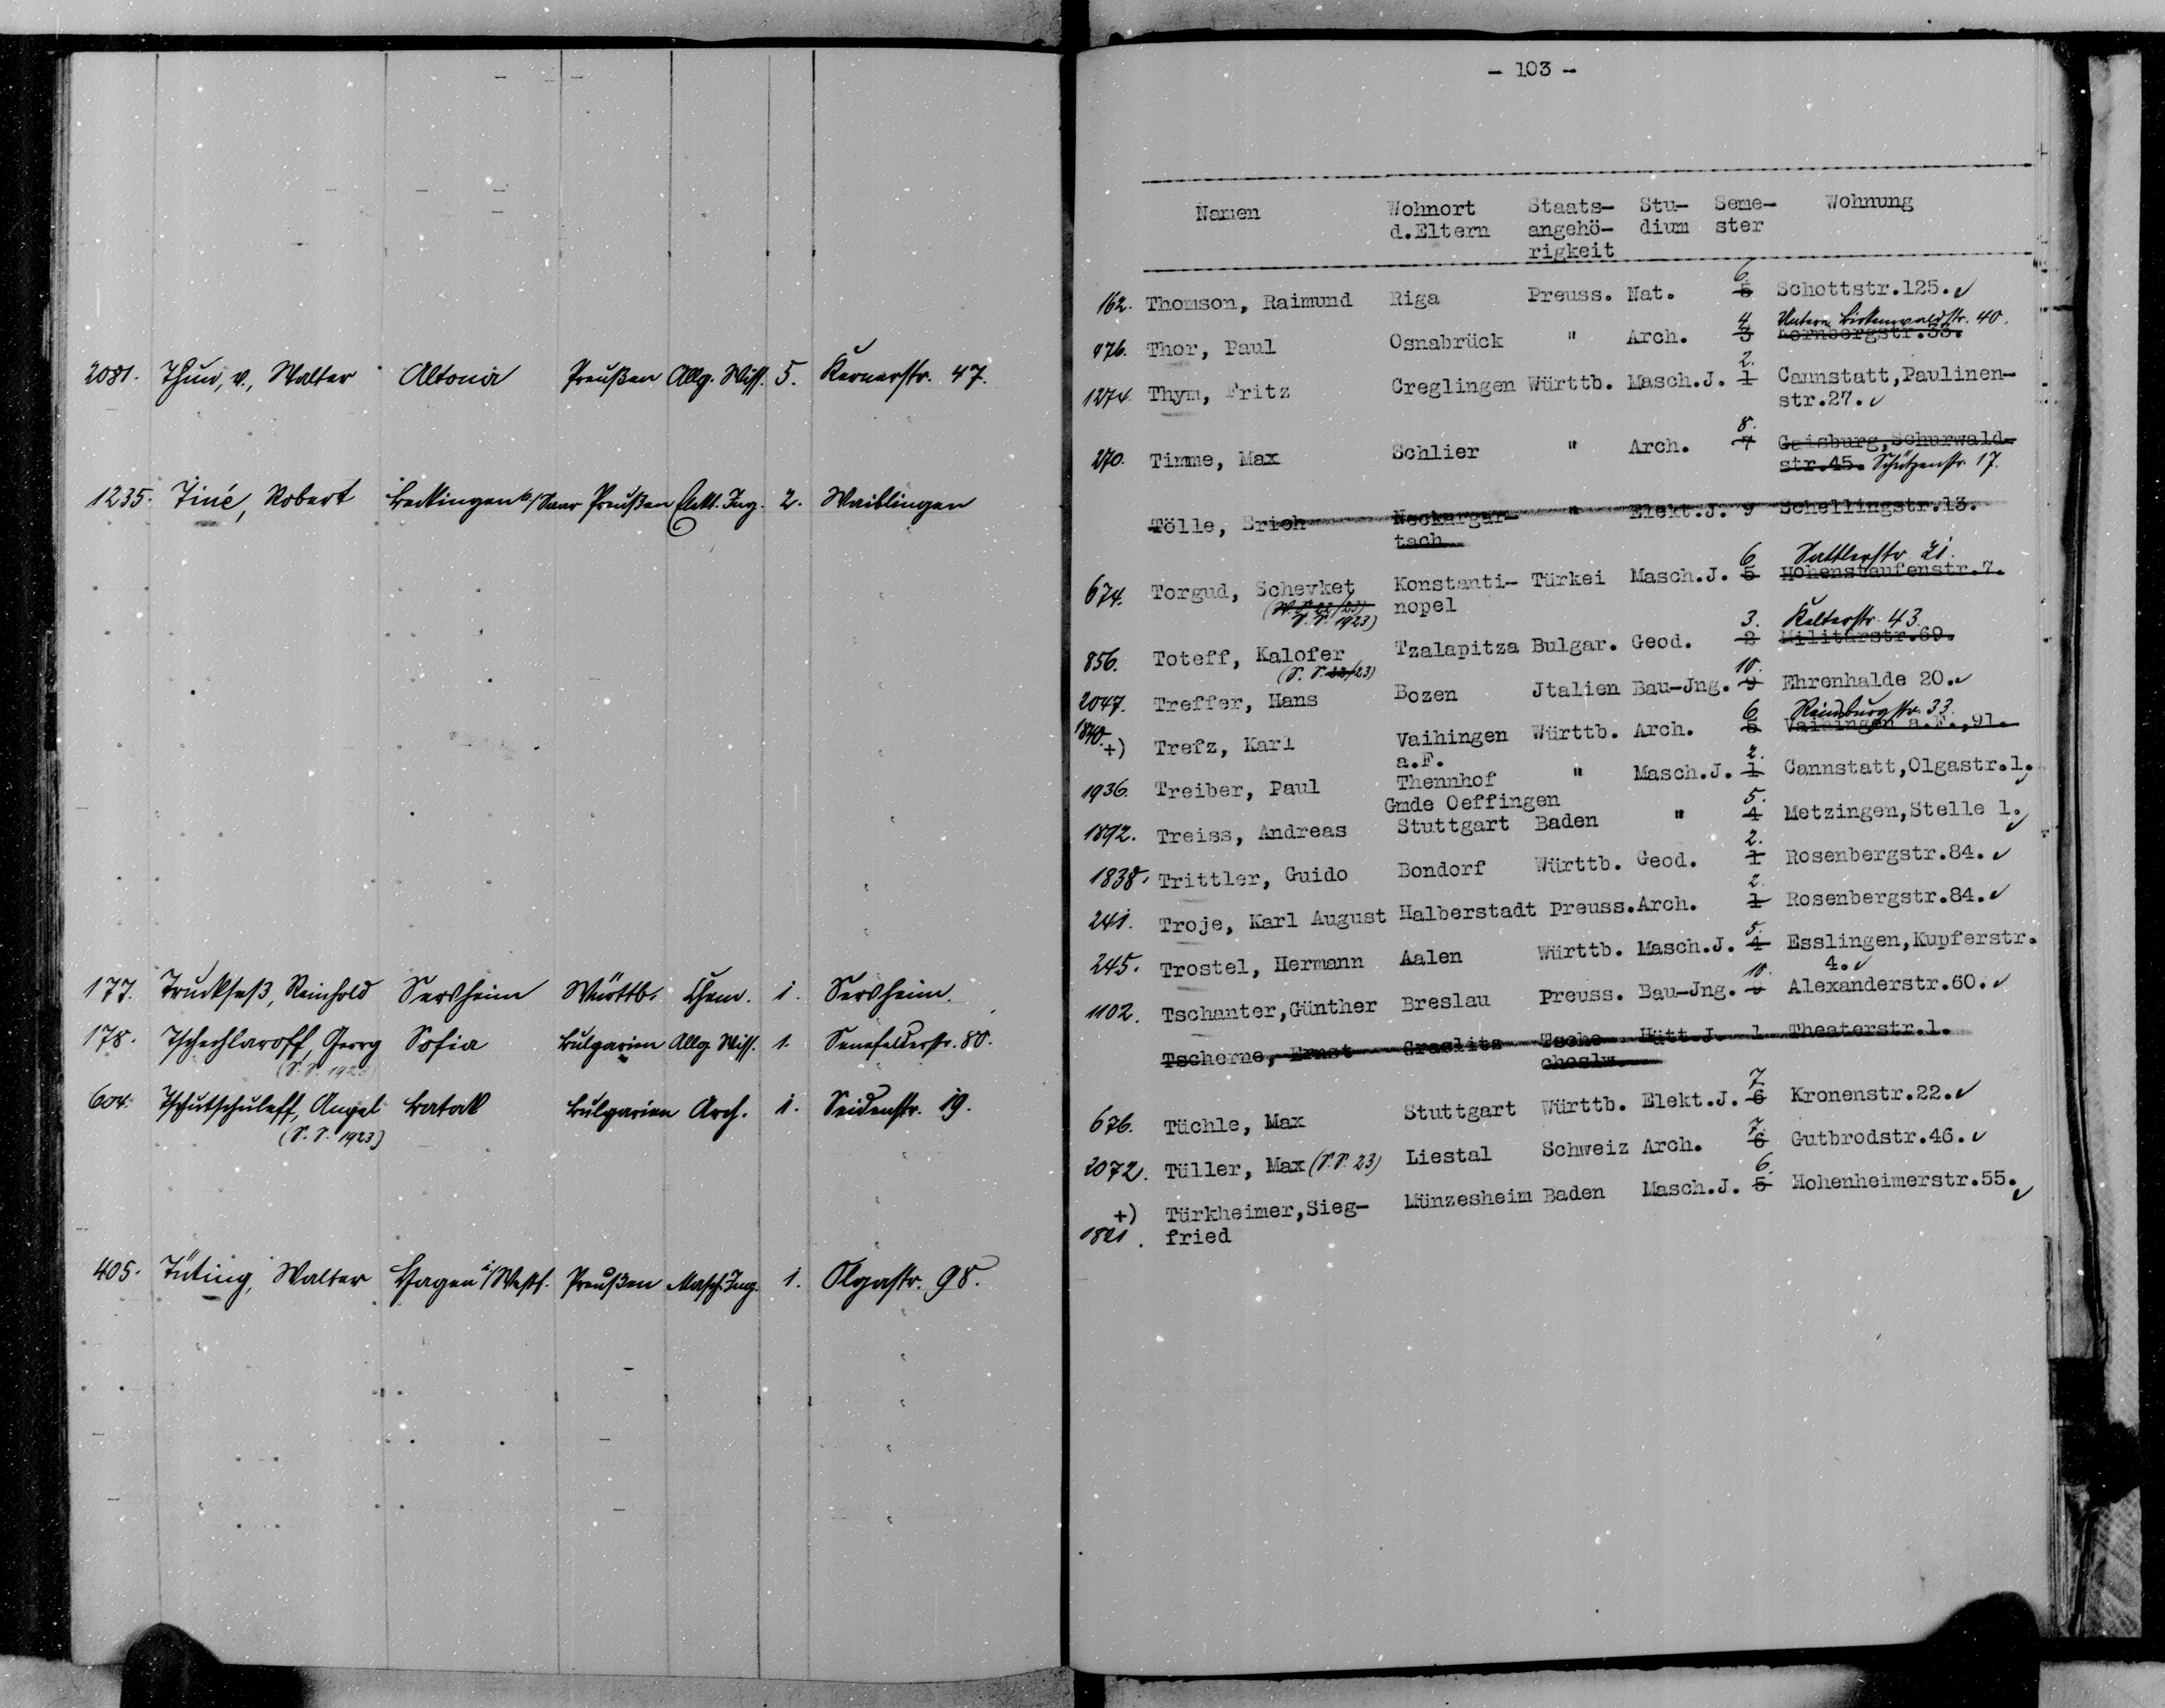 2081. Thun, v., Walter Altona Preußen Allg. Wiss. 5. Kernerstr. 47.
1235. Tiné, Robert Beckingen a/Saar Preußen Elekt. Ing. 2. Waiblingen
177. Truckseß, Reinhold Sersheim Württb. Chem. 1. Sersheim.
178. Georg Sofia Bulgarien Allg. Wiss. 1. Senefelderstr. 80.
(S. S. 1923)
604. Tschutschuleff, Angel Batak Bulgarien Arch. 1. Seidenstr. 19.
(S. S. 1923)
405. Tüting, Walter Hagen i/Westf. Preußen Masch. Ing. 1. Olgastr. 98.
- 103 -
Namen Wohnort Staats- Stu- Seme- Wohnung
d.Eltern angehö- dium ster
rigkeit
6.
162. Thomson, Raimund Riga Preuss. Nat. 5 Schottstr.125.
4 Untere Birkenwaldstr. 40.
976. Thor, Paul Osnabrück " Arch. 3 Lormbergstr.33.
2.
1274. Thym, Fritz Creglingen Württb. Masch.J. 1 Cannstatt,Paulinen-
str.27.
8.
270. Timme, Max Schlier " Arch. 7 Gaisburg,Schurwald-
str.45. Schützenstr. 17.
Tölle, Erich Neckargar- " Elekt.J. 9 Schellingstr.13.
tach
6 Sattlerstr. 21.
674. Torgud, Schevket Konstanti- Türkei Masch.J. 5 Hohenstaufenstr.7.
(W.S. 22/23) nopel
S. S. 1923)
3. Kelterstr. 43.
856. Toteff, Kalofer Tzalapitza Bulgar. Geod. 2 Militärstr.69.
(S. S. 22/23)
10.
2047. Treffer, Hans Bozen Jtalien Bau-Jng. 9 Ehrenhalde 20.
6 Reinsburgstr. 33.
1840. +) Trefz, Karl Vaihingen Württb. Arch. 5 Vaihingen a.F.,91.
a.F.
2.
1936. Treiber, Paul Thennhof " Masch.J. 1 Cannstatt,Olgastr.1.
Gmde Oeffingen
5.
1892. Treiss, Andreas Stuttgart Baden " 4 Metzingen,Stelle 1.
2.
1838. Trittler, Guido Bondorf Württb. Geod. 1 Rosenbergstr.84.
2.
241. Troje, Karl August Halberstadt Preuss.Arch. 1 Rosenbergstr.84.
5.
245. Trostel, Hermann Aalen Württb. Masch.J. 4 Esslingen,Kupferstr.
4.
10.
1102. Tschanter,Günther Breslau Preuss. Bau-Jng. Alexanderstr.60.
Tscherne, Ernst Graslitz Tsche- Hütt.J. 1 Theaterstr.1.
choslw.
7
676. Tüchle, Max Stuttgart Württb. Elekt.J. 6 Kronenstr.22.
7.
2072. Tüller, Max (S.S. 23) Liestal Schweiz Arch. 6 Gutbrodstr.46.
6.
+) Türkheimer,Sieg- Münzesheim Baden Masch.J. 5 Hohenheimerstr.55.
1821. fried